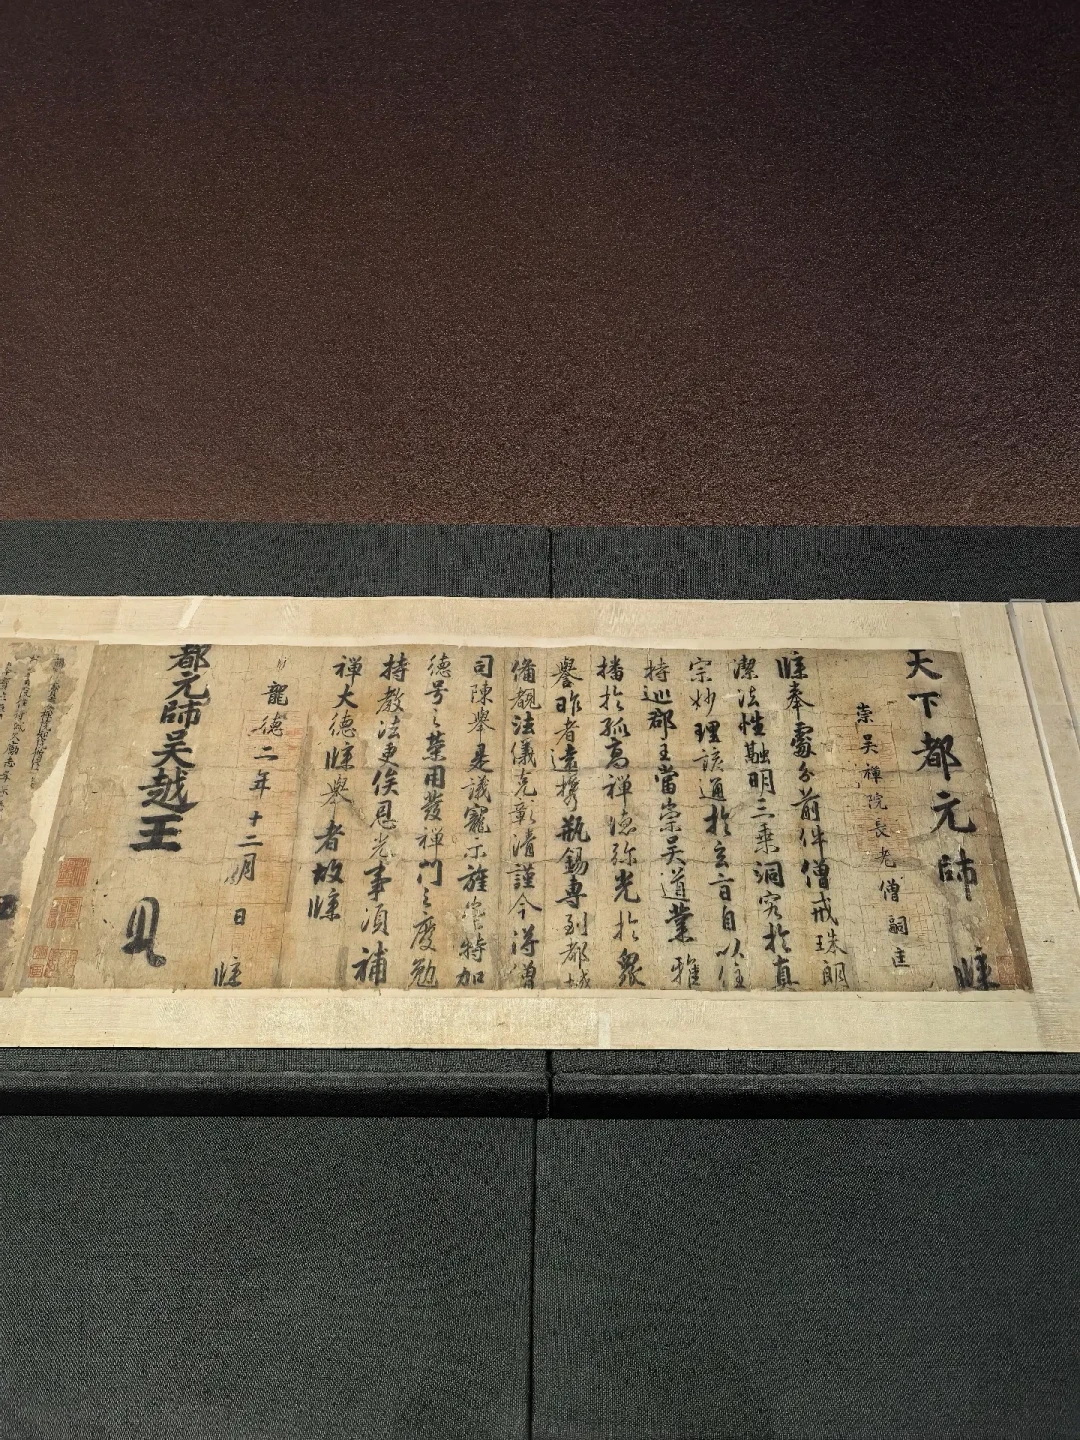 天下都元師 牒
崇吴禪院長老僧嗣匡
牒奉處分前件僧戒珠朗
潔法性融明三乘洞究於真
宗妙理該通於玄旨自以住
持巡郡王當崇吴道業雅
播於孤高禪德弥光於衆
譽昨者遠攜瓶錫專到都城
備覩法儀克彰清謹今得僧
司陳舉是議寵示旌 特加
德号之榮用發禪門之慶勉
持教法更俟恩光事須補
禪大德牒舉者故牒
龍德二年十二月 日 牒
都元師吴越王